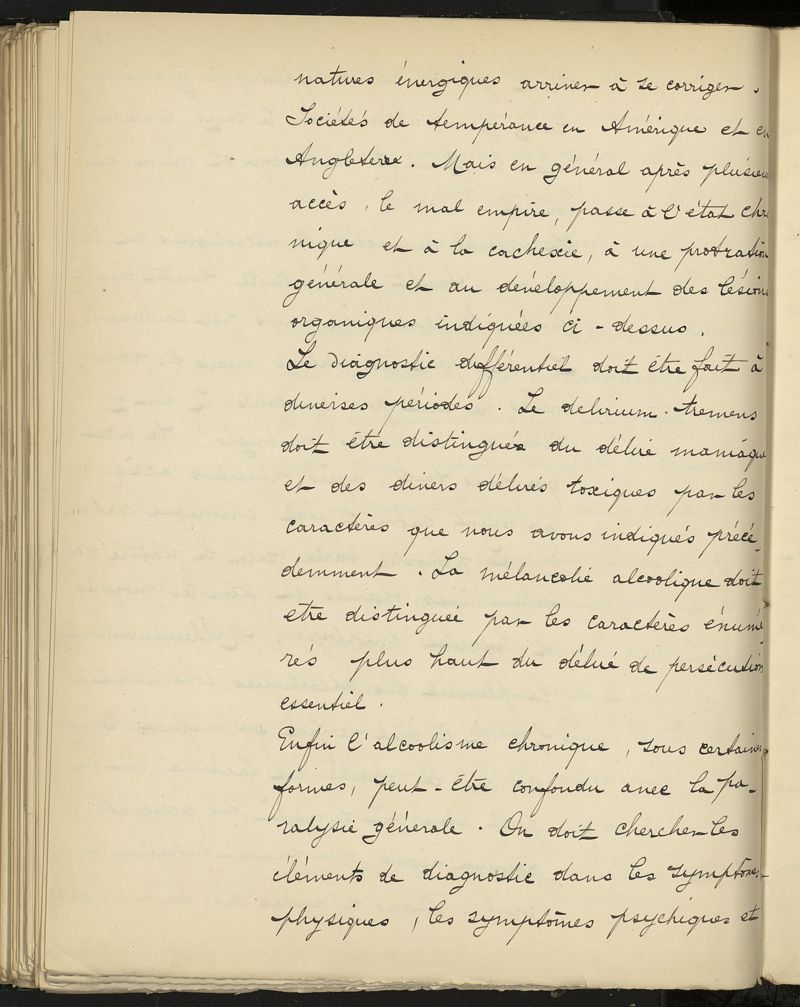 natures énergiques arriver à se corriger.
Sociétés de tempérance en Amérique et en
Angleterre. Mais en général après plusieurs
accès, le mal empire, passe à l'état chro
nique et à la cachexie, à une protration
générale et au développement des lésions
organiques indiquées ci-dessus.
Le diagnostic différentiel doit être fait à
diverses périodes. Le delirium-tremens
doit être distingué du délire maniaque
et des divers délires toxiques par les
caractères que nous avons indiqués précé-
demment. La mélancolie alcoolique doit
etre distinguée par les caractères énumé-
rés plus haut du délire de persécution
essentiel.
Enfin l'alcoolisme chronique, sous certaines
formes, peut-être confondu avec la pa-
ralysie générale. On doit chercher les
éléments de diagnostic dans les symptômes
physiques, les symptômes psychiques et